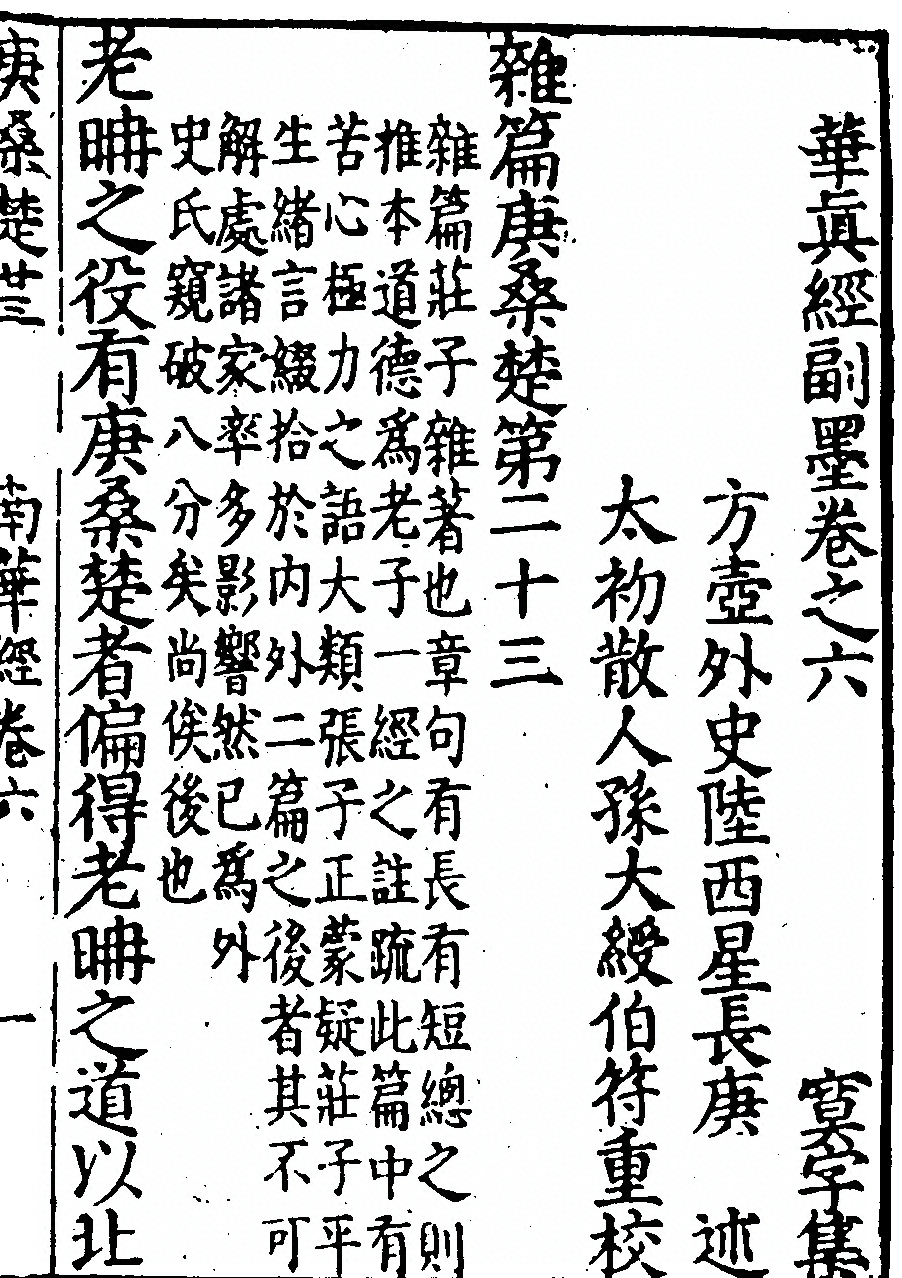 華眞經副墨卷之六 㝠字集
方壺外史陸西星長庚 述
太初散人孫大綬伯符重校
雜篇庚桑楚第二十三
雜篇莊子雜著也章句有長有短總之則
推本道德爲老子一經之註疏此篇中有
苦心極力之語大類張子正蒙疑莊子平
生緒言綴拾於内外二篇之後者其不可
解處諸家率多影響然已爲外
史氏窺破八分矣尚俟後也
老𥅆之役有庚桑楚者偏得老𥅆之道以北
庚桑楚廿三 南華經卷六 一